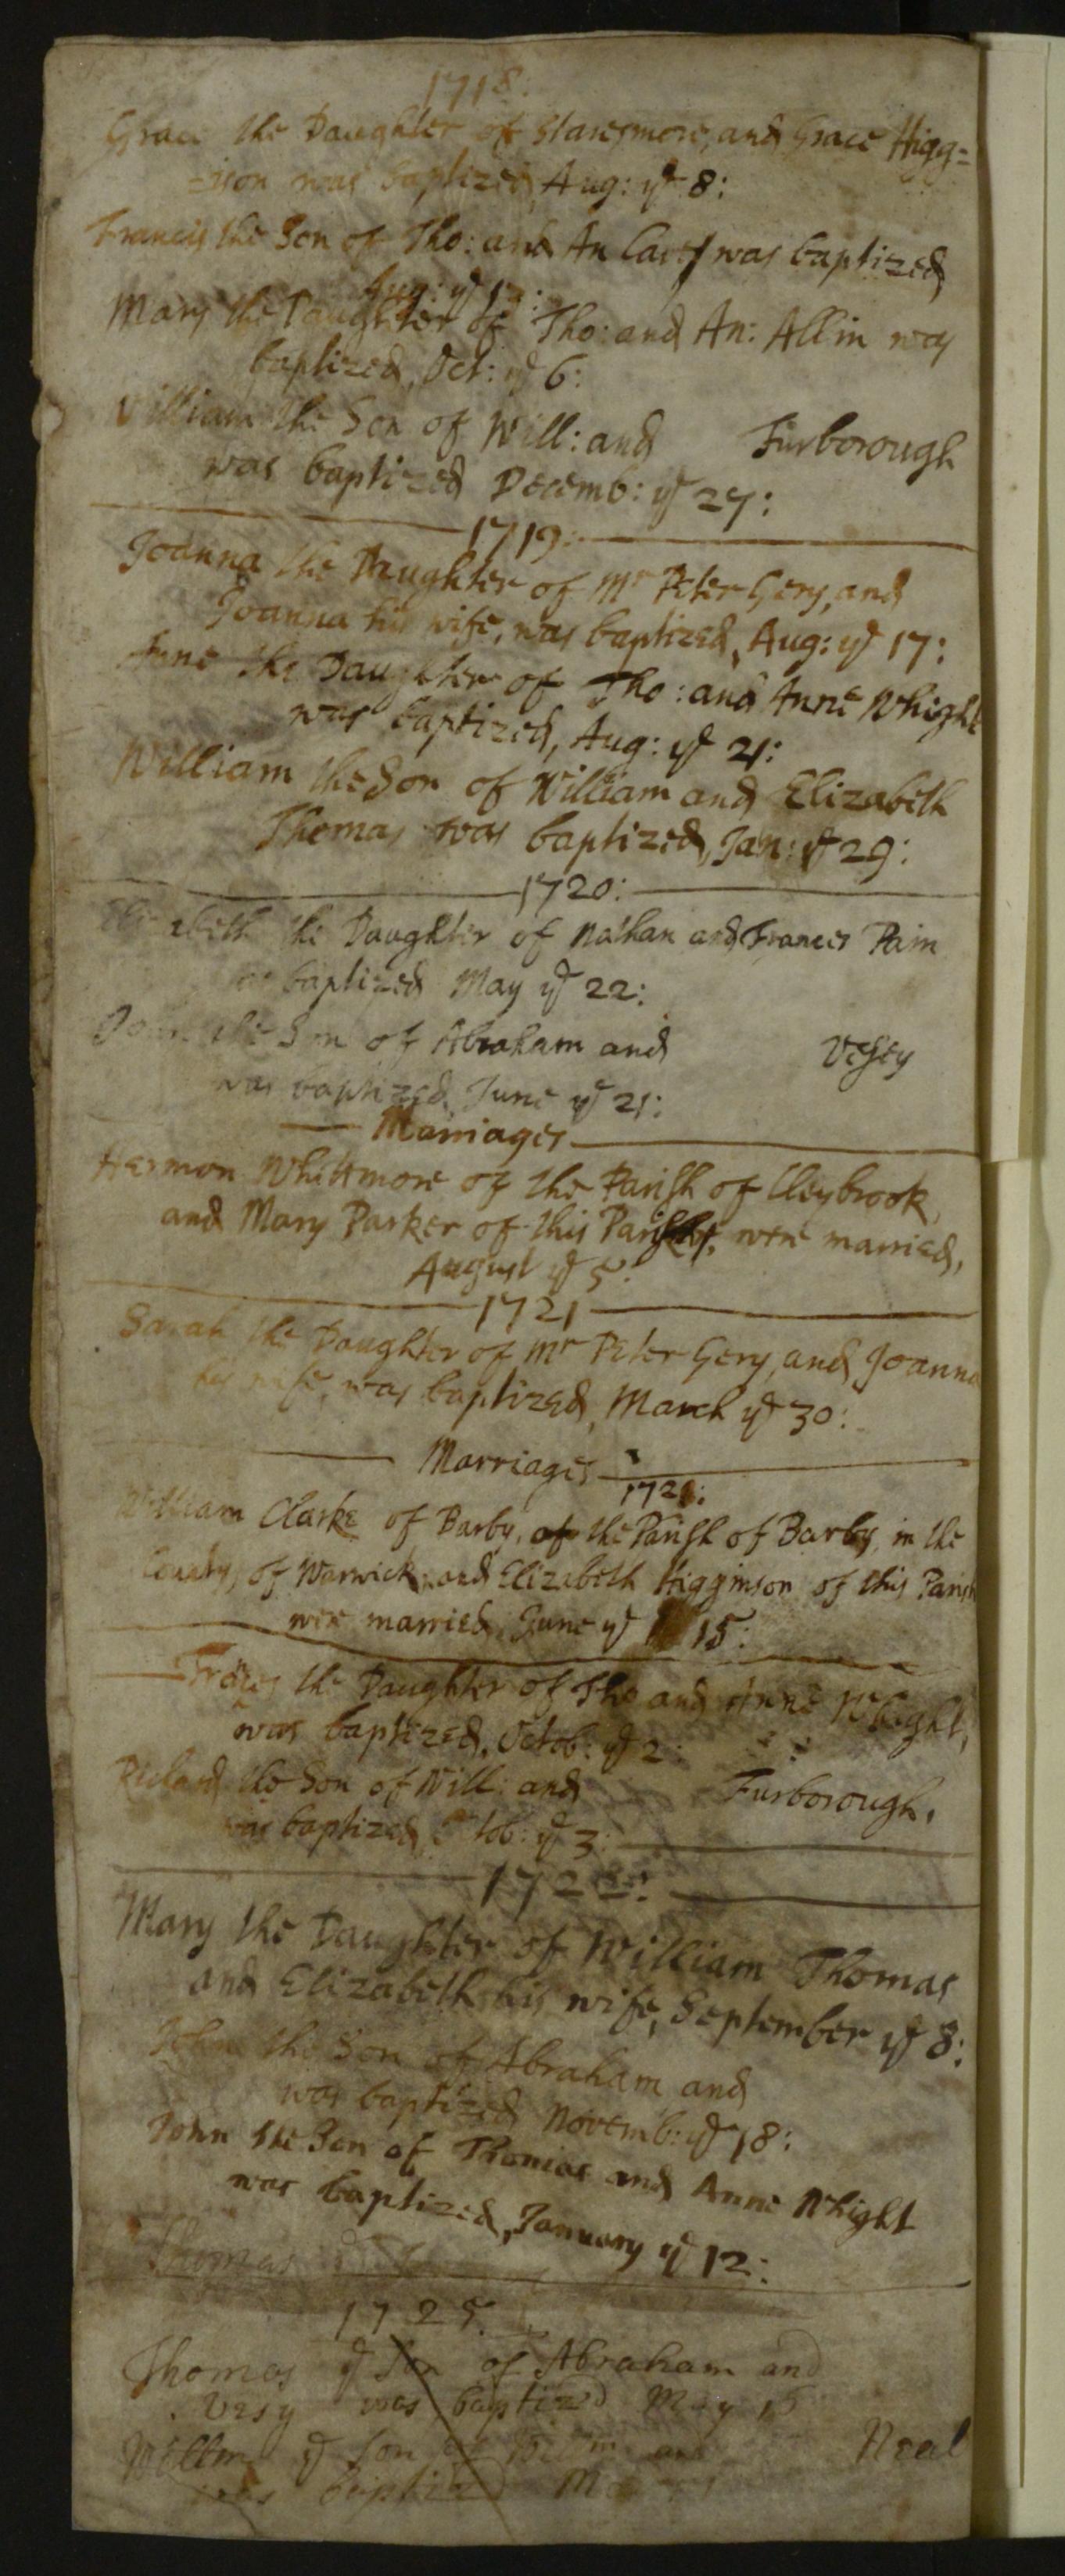 1718:
Grace the Daughter of Staresmore, and Grace Higg=
=ison was baptized, Aug: ye 8:
Francis the Son of Tho: and An was baptized,
Aug: ye
Mary the Daughter of Tho: and An: Allin was
baptized, Oct: ye 6:
William the Son of Will: and Furborough
was baptized Decemb: ye 27:
1719:
Joanna the Daughter of Mr Peter Gery, and
Joanna his wife, was baptized, Aug: ye 17:
Anne the Daughter of Tho: and Anne Whight
was baptized, Aug: ye 21:
William the Son of William and Elizabeth
Thomas was baptized, Jan: ye 29:
1720:
Elizabeth the Daughter of Nathan and Frances Pain
was baptized May ye 22:
the Son of Abraham and Vesey
was baptized June ye 21:
Marriages
Hermon Whittmore of the Parish of Cleybrook,
and Mary Parker of this Parish, were married,
August ye 5:
1721
Sarah the Daughter of Mr Peter Gery, and Joanna
his wife, was baptized, March ye 30:
Marriages
1721:
William Clarke of Barby, of the Parish of Barby, in the
County of Warwick, and Elizabeth Higginson of this Parish
were married, June ye 15:
the Daughter of Tho and Anne Whight,
was baptized, Octob: ye 2:
Richard the Son of Will: and Furborough,
was baptized Octob: ye 3:
1722:
Mary the Daughter of William Thomas
and Elizabeth his wife, September ye 8:
John the Son of Abraham and
was baptized Novemb: ye 18:
John the Son of Thomas and Anne Whight
was baptized, January ye 12:
Thomas
1725.
Thomas ye Son of Abraham and
Vesy was baptized May 15
Willm ye Son of Willm and Neal
was Baptized